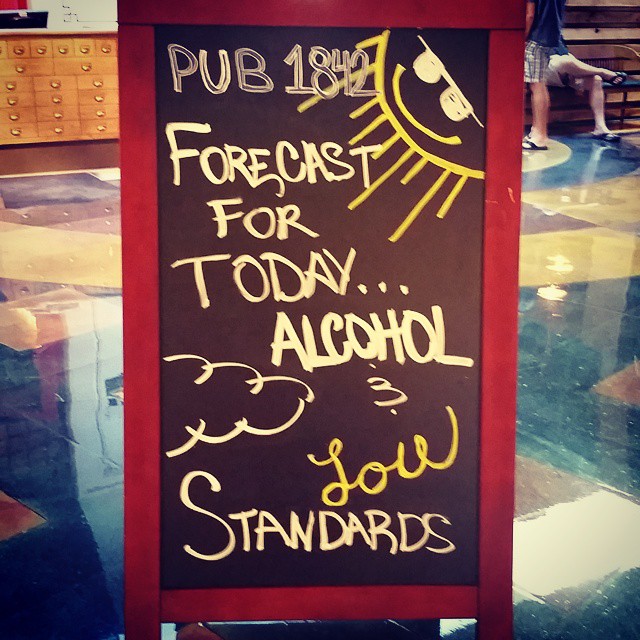 PUB 1842
FORECAST
FOR
TODAY...
ALCOHOL
&
Low
STANDARDS